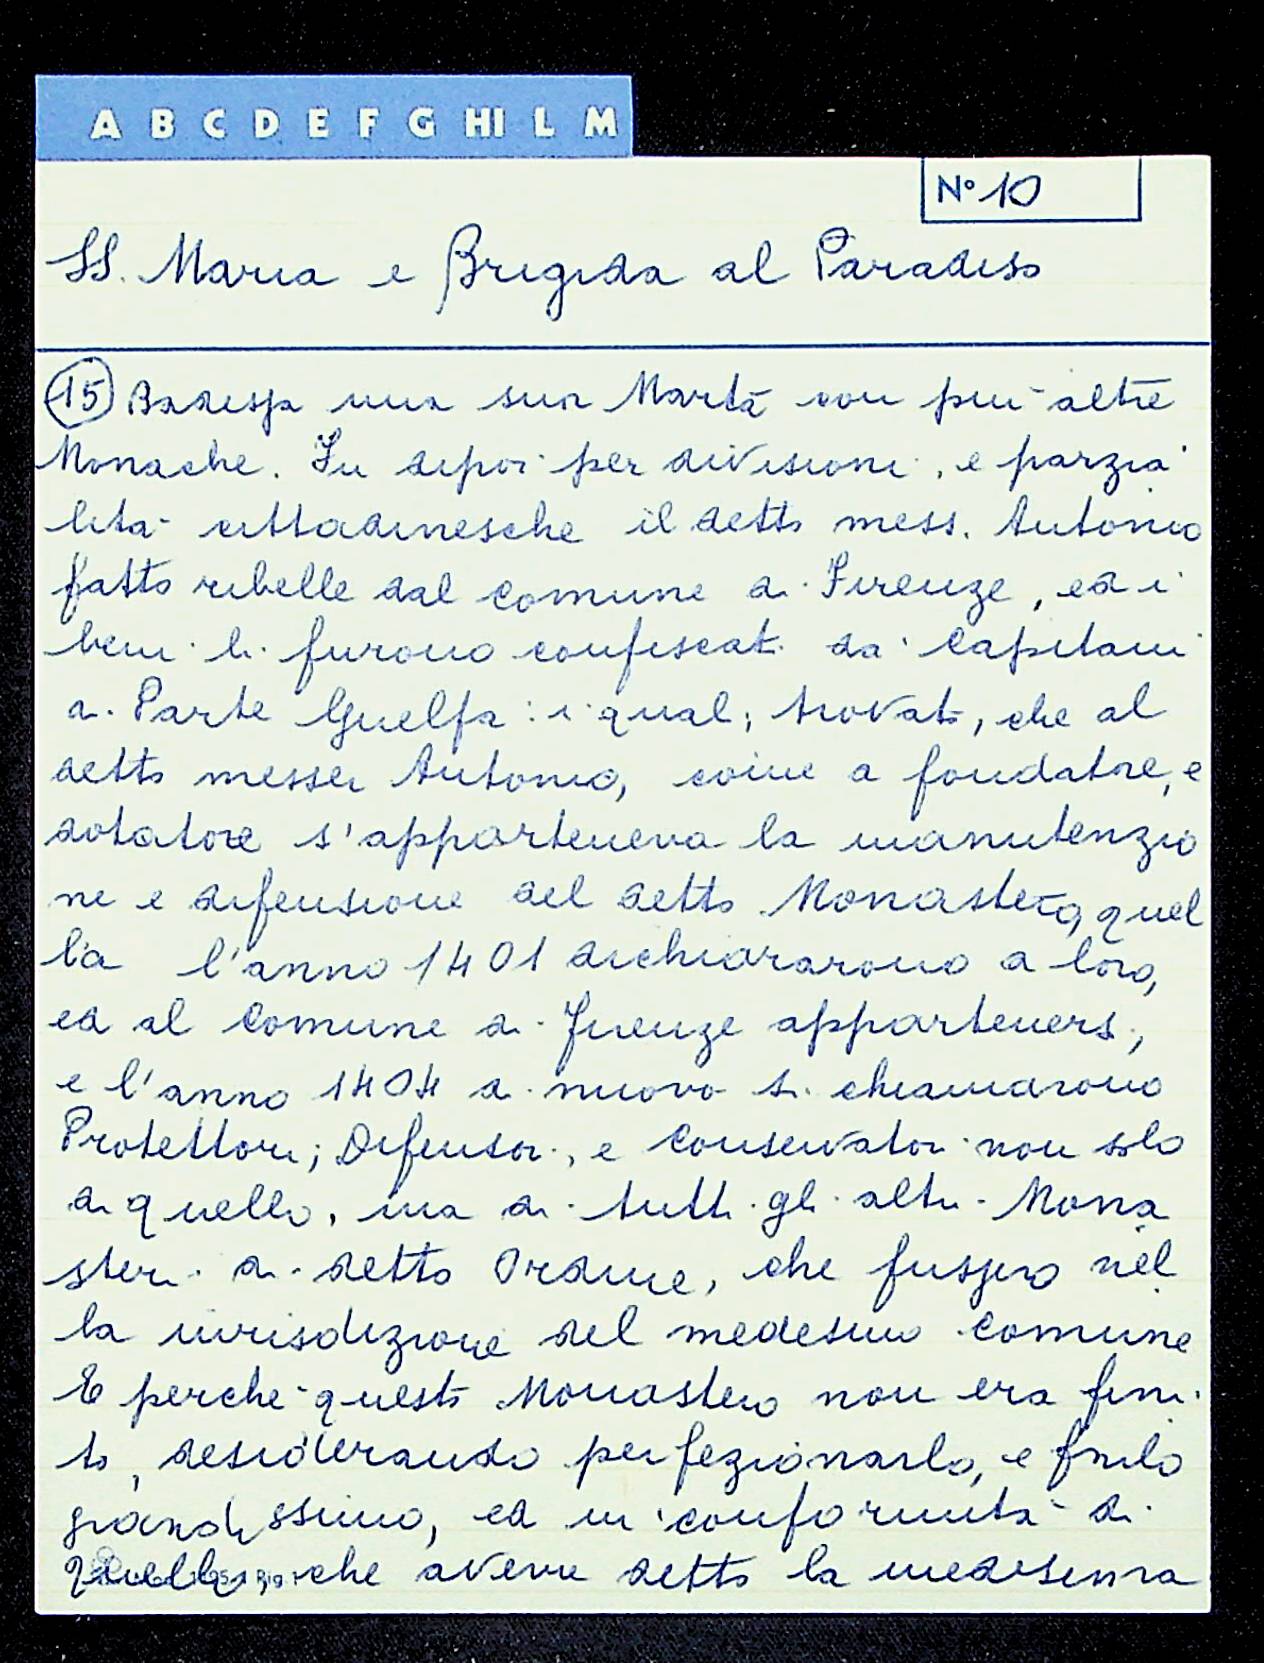 A B C D E F G HI L M
N° 10
SS. Maria e Brigida al Paradiso
15 Badessa una suor Marta con più altre
Monache. Fu dipoi per divisioni, e parzia
lità cittadinesche il detto mess. Antonio
fatto ribelle dal Comune di Firenze, ed i
beni li furono confiscati da Capitani
di Parte Guelfa: i quali, trovato, che al
detto messer Antonio, come a fondatore, e
dotatore s'apparteneva la manutenzio
ne e difensione del detto Monastero, quel
la l'anno 1401 dichiararono a loro,
ed al Comune di Firenze appartenersi,
e l'anno 1404 di nuovo si chiamarono
Protettori; Difensori, e Conservatori non solo
di quello, ma di tutti gli altri Mona
steri di detto Ordine, che fussero nel
la iurisdizione del medesimo Comune
E perchè questo Monastero non era fini
to, desiderando perfezionarlo, e farlo
grandissimo, ed in conformità di
quello, che aveve detto la medesima